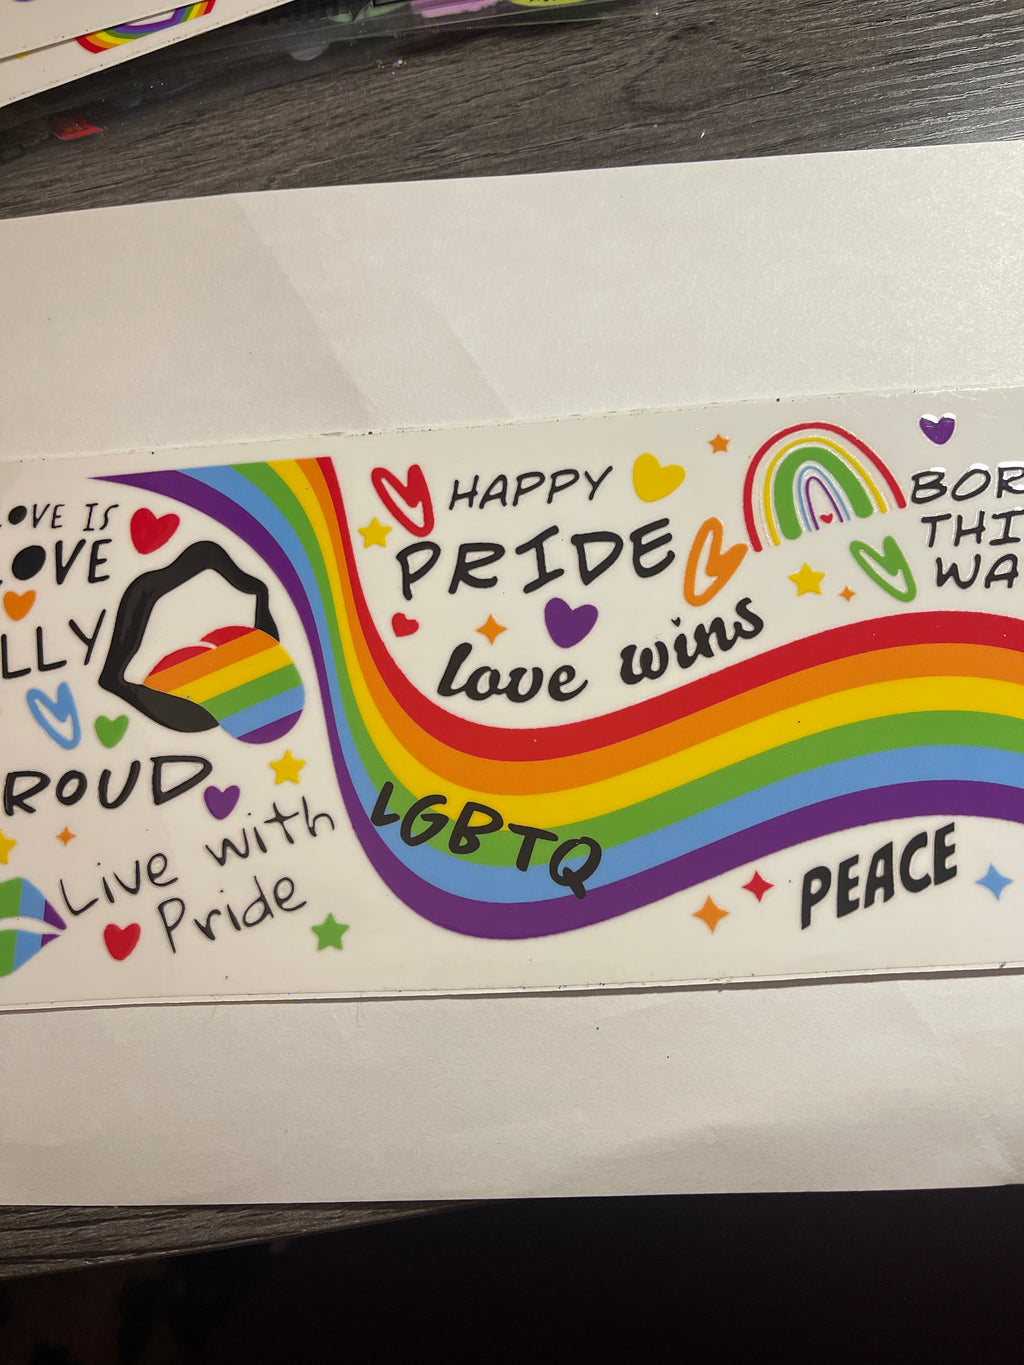 LOVE IS
LOVE
LLY
ROUD
Live with
Pride
HAPPY
PRIDE
love wins
LGBTQ
BOR
THI
WA
PEACE